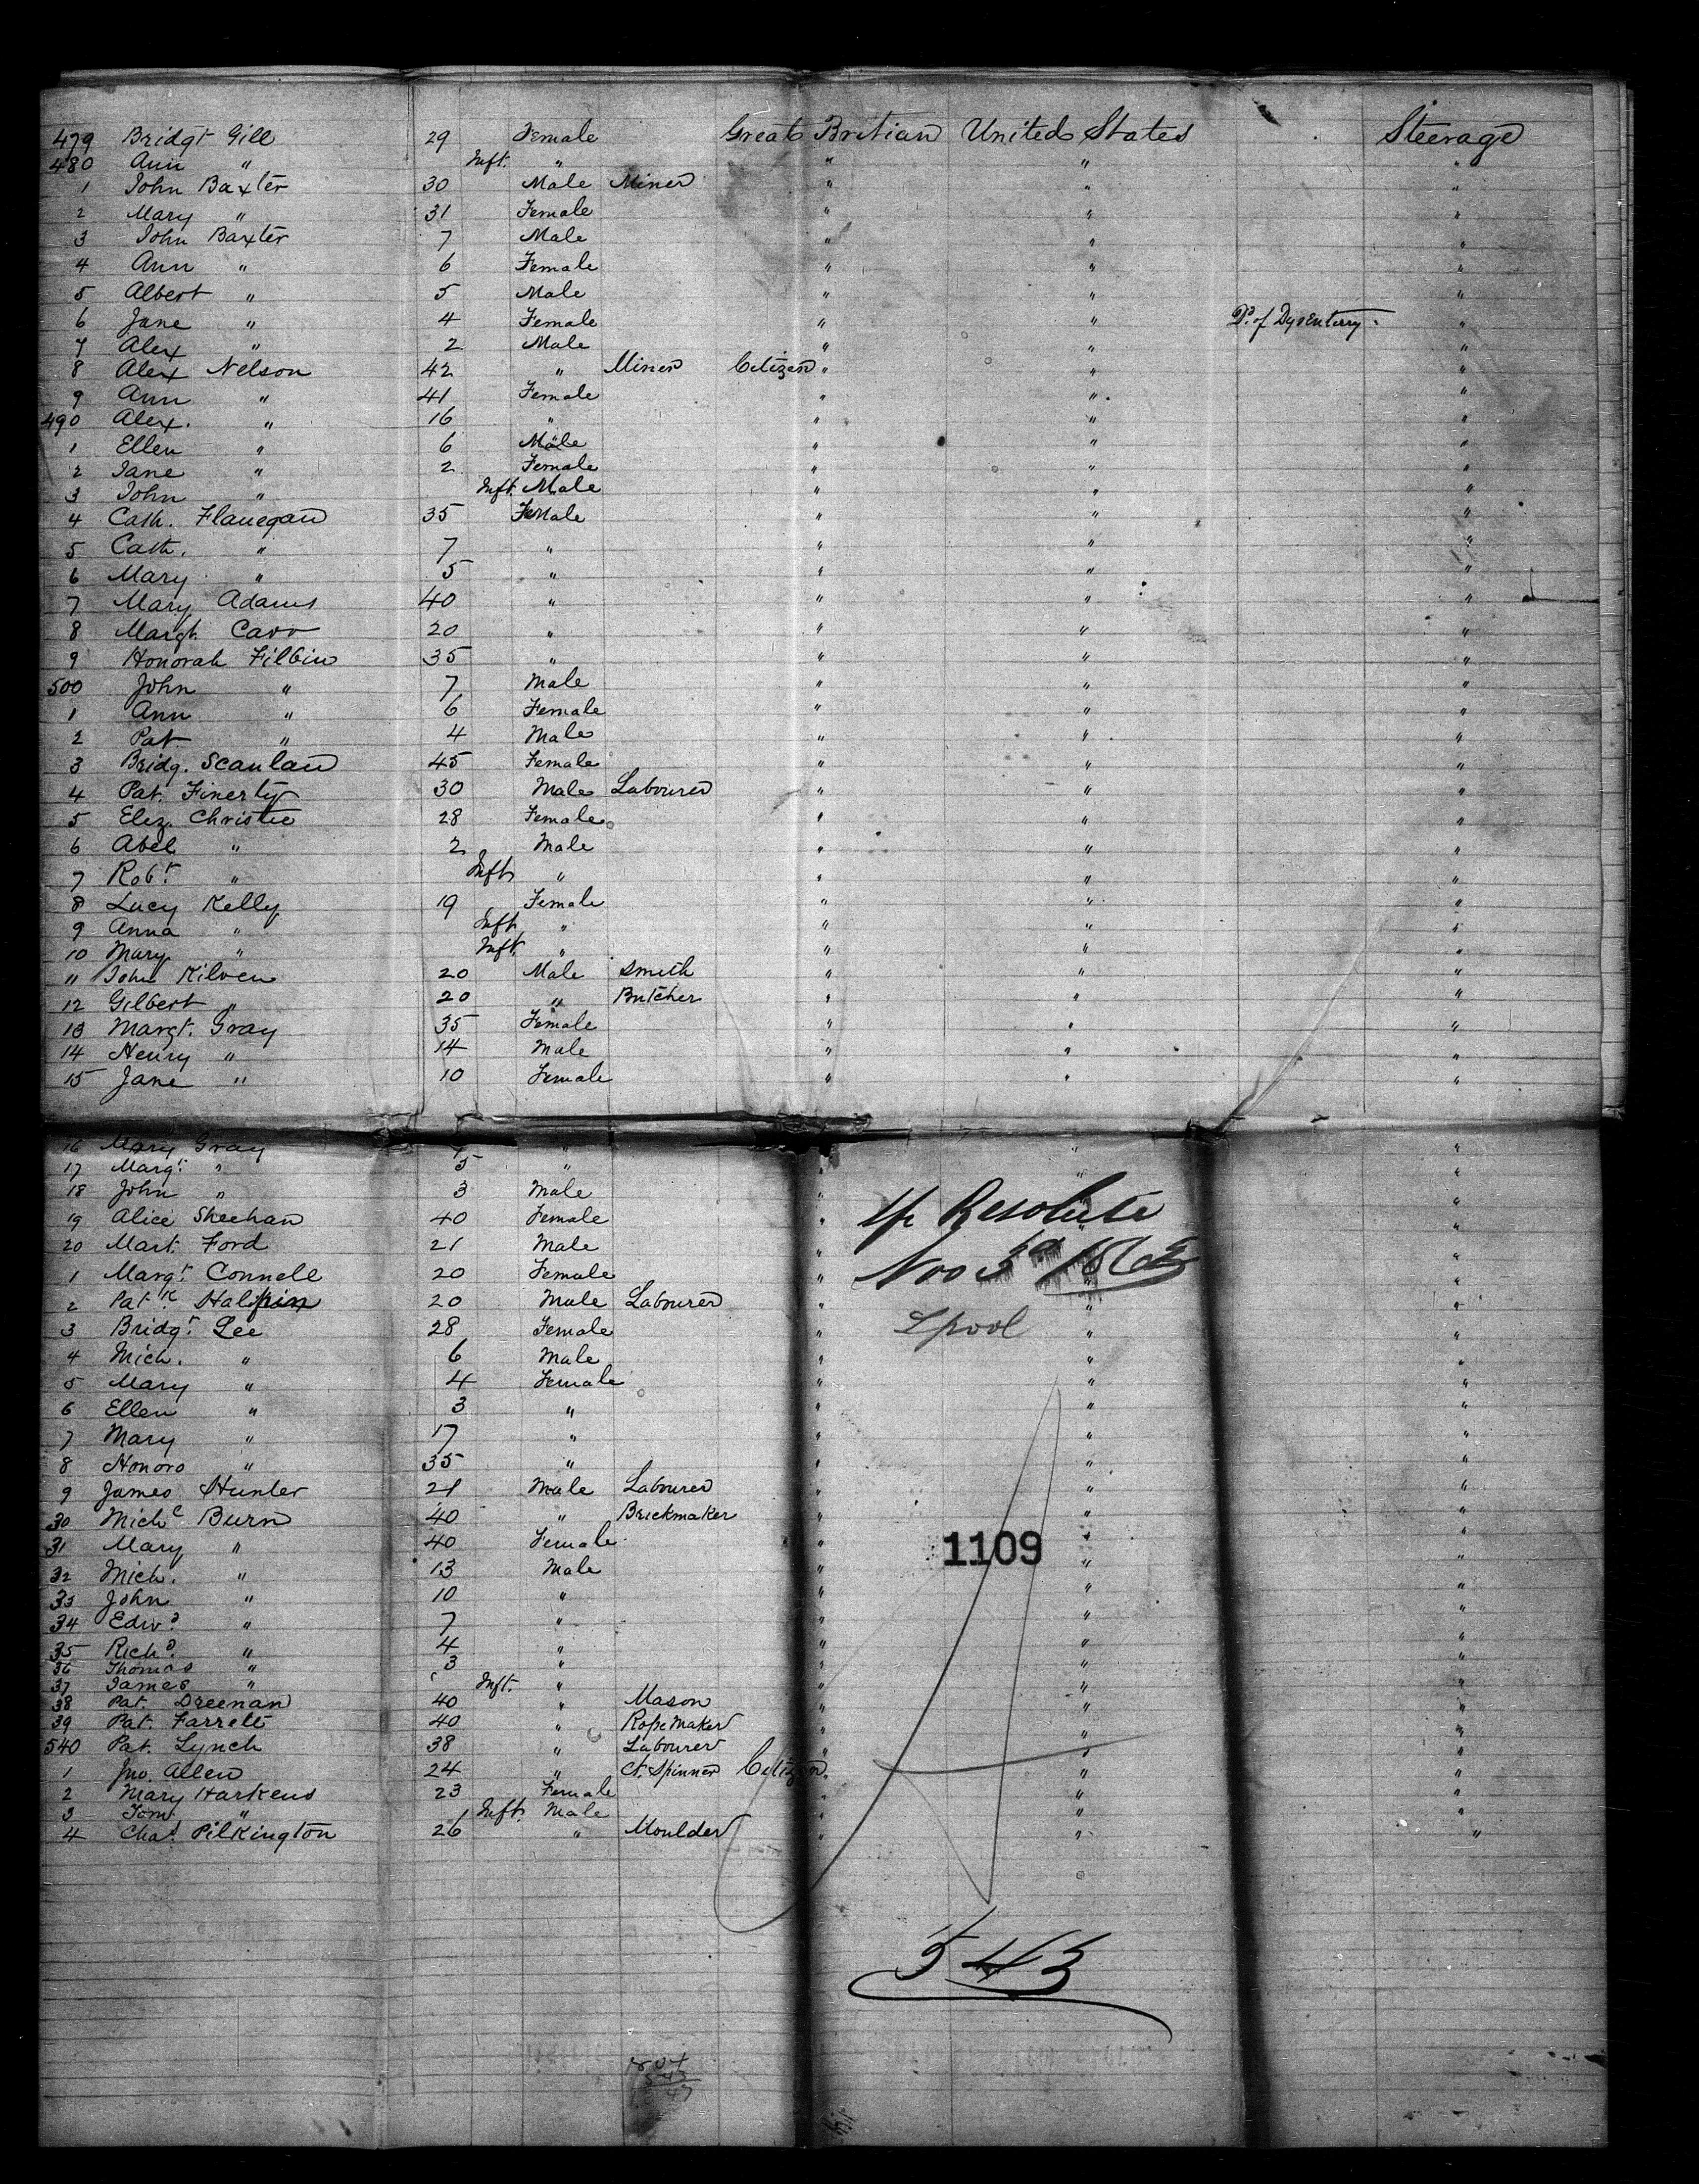 479 Bridgt Gill 29 Female Great Britian United States Steerage
480 Ann " Inft. " " " "
1 John Baxter 30 Male Miner " " "
2 Mary " 31 Female " " "
3 John Baxter 7 Male " " "
4 Ann " 6 Female " " "
5 Albert " 5 Male " " "
6 Jane " 4 Female " " D. of Dysenterry. "
7 Alex " 2 Male " " "
8 Alex Nelson 42 " Miner Citizen " " "
9 Ann " 41 Female " " "
490 Alex. " 16 " " " "
1 Ellen " 6 Male " " "
2 Jane " 2 Female " " "
3 John " Inft. Male " " "
4 Cath. Flanegan 35 Female " " "
5 Cath. " 7 " " " "
6 Mary " 5 " " " "
7 Mary Adams 40 " " " "
8 Margt. Carr 20 " " " "
9 Honorah Filbin 35 " " " "
500 John " 7 Male " " "
1 Ann " 6 Female " " "
2 Pat " 4 Male " " "
3 Bridg. Scanlan 45 Female " " "
4 Pat. Finerty 30 Male Labourer " " "
5 Eliz. Christie 28 Female " " "
6 Abel " 2 Male " " "
7 Robt. " Inft " " " "
8 Lucy Kelly 19 Female " " "
9 Anna " Inft. " " " "
10 Mary " Inft. " " " "
11 John Kilven 20 Male Smith " " "
12 Gilbert " 20 " Butcher " " "
13 Margt. Gray 35 Female " " "
14 Henry " 14 Male " " "
15 Jane " 10 Female " " "
16 Mary Gray 7 " " " "
17 Margt. " 5 " " " "
18 John " 3 Male " "
19 Alice Sheehan 40 Female " Sp Resolute "
20 Mart. Ford 21 Male " "
1 Margt. Connell 20 Female " Nov 3d "
2 Patk. Halpin 20 Male Labourer " " "
3 Bridgt. Lee 28 Female " Lpool " "
4 Mich. " 6 Male " " "
5 Mary " 4 Female " " "
6 Ellen " 3 " " " "
7 Mary " 17 " " " "
8 Honoro " 35 " " " "
9 James Hunter 21 Male Labourer " " "
30 Michl Burn 40 " Brickmaker " " "
31 Mary " 40 Female " 1109 " "
32 Mich. " 13 Male " " "
33 John " 10 " " " "
34 Edwd. " 7 " " " "
35 Richd. " 4 " " " "
36 Thomas " 3 " " " "
37 James " Inft. " " " "
38 Pat. Dreenan 40 " Mason " " "
39 Pat. Farrell 40 " Rope Maker " " "
540 Pat. Lynch 38 " Labourer " " "
1 Jno. Allen 24 " Ct. Spinner Citizen " " "
2 Mary Harkens 23 Female " " "
3 Tom " Inft. Male " " "
4 Chas. Pilkington 26 " Moulder " " "
543